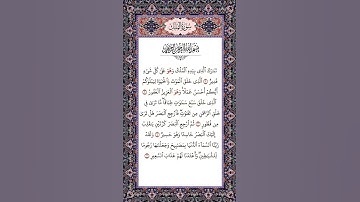 سُورَةُ الْمُلْكِ
بِسْمِ اللَّهِ الرَّحْمَٰنِ الرَّحِيمِ
تَبَارَكَ الَّذِي بِيَدِهِ الْمُلْكُ وَهُوَ عَلَىٰ كُلِّ شَيْءٍ
قَدِيرٌ ۝ الَّذِي خَلَقَ الْمَوْتَ وَالْحَيَاةَ لِيَبْلُوَكُمْ
أَيُّكُمْ أَحْسَنُ عَمَلًا وَهُوَ الْعَزِيزُ الْغَفُورُ ۝
الَّذِي خَلَقَ سَبْعَ سَمَاوَاتٍ طِبَاقًا مَا تَرَىٰ فِي
خَلْقِ الرَّحْمَٰنِ مِنْ تَفَاوُتٍ فَارْجِعِ الْبَصَرَ هَلْ تَرَىٰ
مِنْ فُطُورٍ ۝ ثُمَّ ارْجِعِ الْبَصَرَ كَرَّتَيْنِ يَنْقَلِبْ
إِلَيْكَ الْبَصَرُ خَاسِئًا وَهُوَ حَسِيرٌ ۝ وَلَقَدْ
زَيَّنَّا السَّمَاءَ الدُّنْيَا بِمَصَابِيحَ وَجَعَلْنَاهَا رُجُومًا
لِلشَّيَاطِينِ وَأَعْتَدْنَا لَهُمْ عَذَابَ السَّعِيرِ ۝